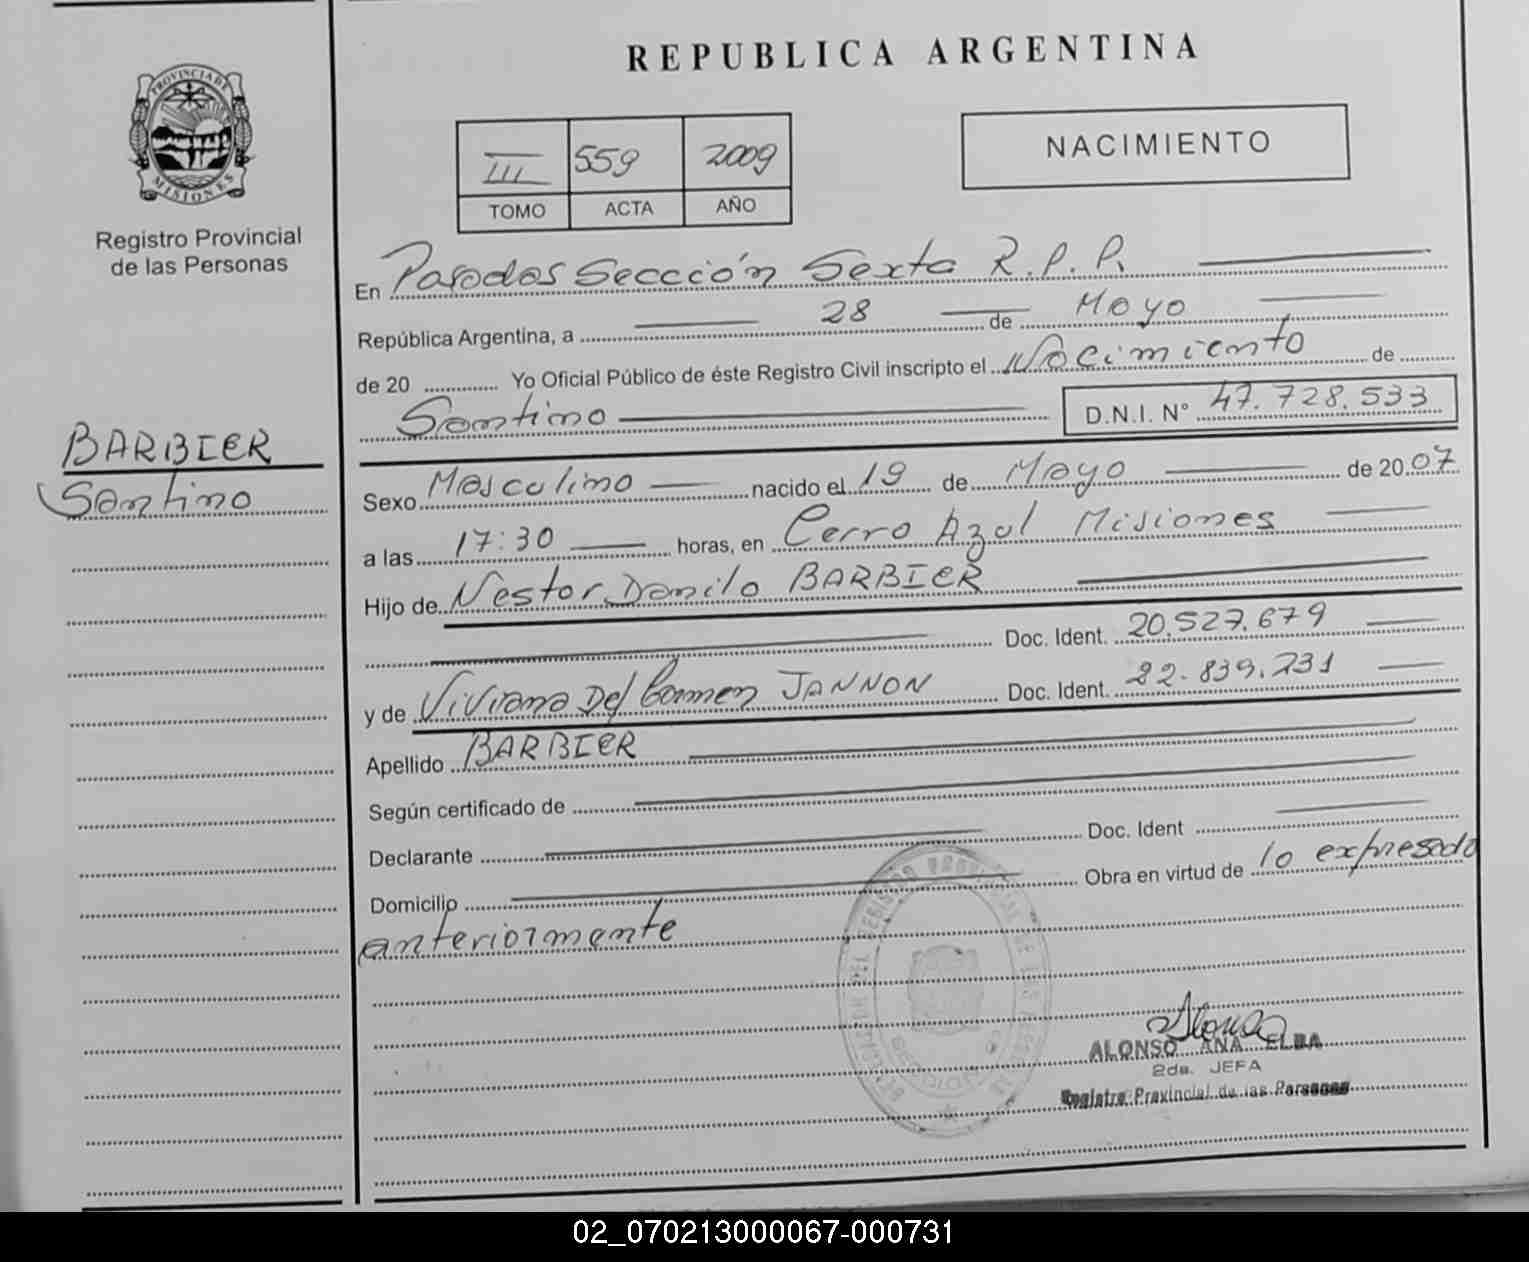 REPUBLICA ARGENTINA
PROVINCIA DE
MISIONES
Registro Provincial
de las Personas
III 559 2009
TOMO ACTA AÑO
NACIMIENTO
En Posadas Seccción Sexta R.P.P.
República Argentina, a 28 de Mayo
de 20 Yo Oficial Público de éste Registro Civil inscripto el Nacimiento de
Santino D.N.I. N° 47.728.533
BARBIER
Santino
Sexo Masculino nacido el 19 de Mayo de 2007
a las 17:30 horas, en Cerro Azul Misiones
Hijo de Nestor Danilo BARBIER
Doc. Ident. 20.527.679
y de Viviana Del Carmen JANNON Doc. Ident. 22.839.231
Apellido BARBIER
Según certificado de
Declarante Doc. Ident
Domicilio Obra en virtud de lo expresado
anteriormente
ALONSO ANA ELBA
2da. JEFA
Registro Provincial de las Personas
02_070213000067-000731